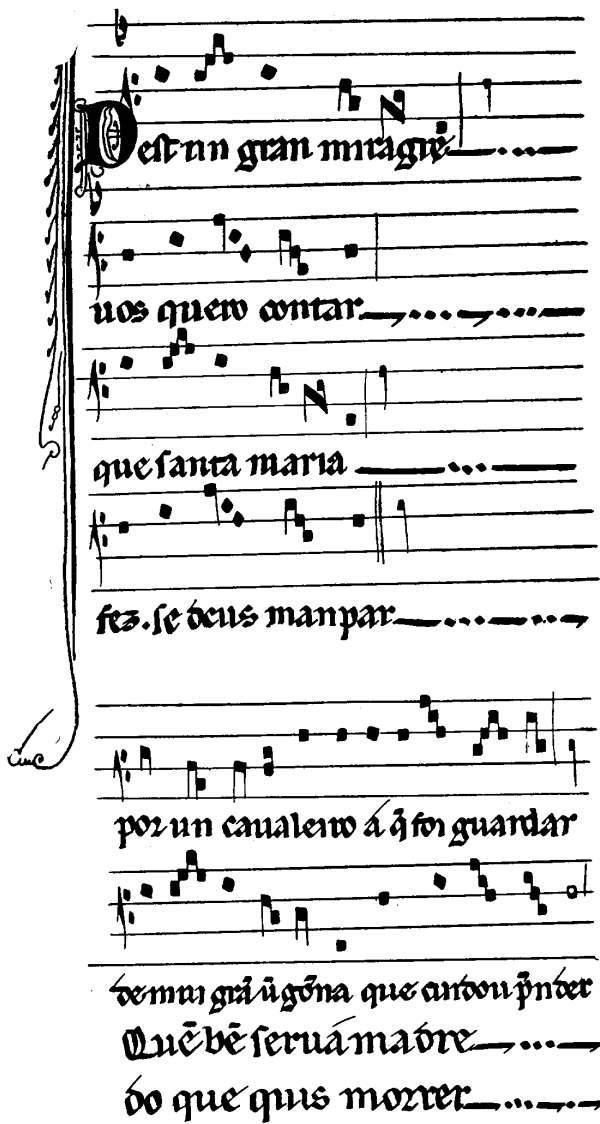 Dest un gran miragre
uos quero contar
que santa maria
fez. se deus manpar
por un caualeiro á q̃ foi guardar
de mui grã ũgõna que cuidou p̃nder
Quẽ bẽ seruá madre
do que quis morrer